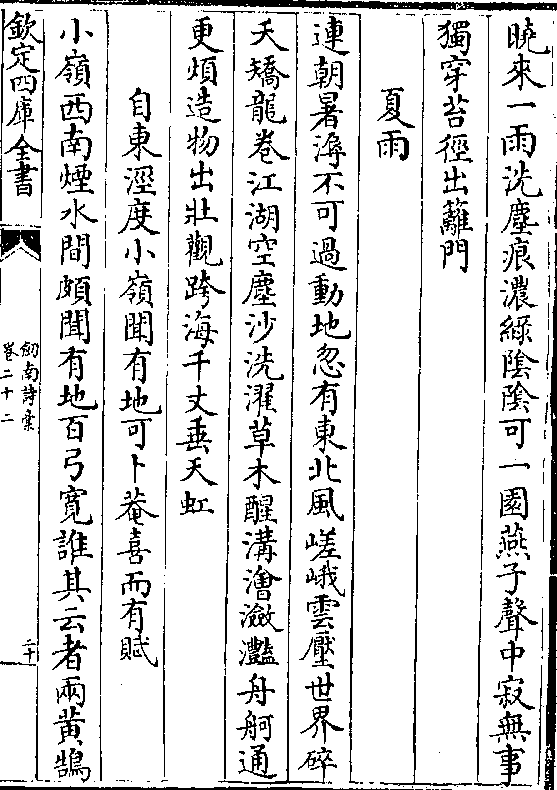 曉來一雨洗塵痕濃綠陰陰可一園燕子聲中寂無事
獨穿苔徑出籬門
夏雨
連朝暑溽不可過動地忽有東北風嵯峨雲壓世界碎
夭矯龍卷江湖空塵沙洗濯草木醒溝澮瀲灩舟舸通
更煩造物出壯觀跨海千丈垂天虹
自東涇度小嶺聞有地可卜菴喜而有賦
小嶺西南煙水間頗聞有地百弓寬誰其云者兩黃鵠
欽定四庫全書
劒南詩槀
卷二十二
二十